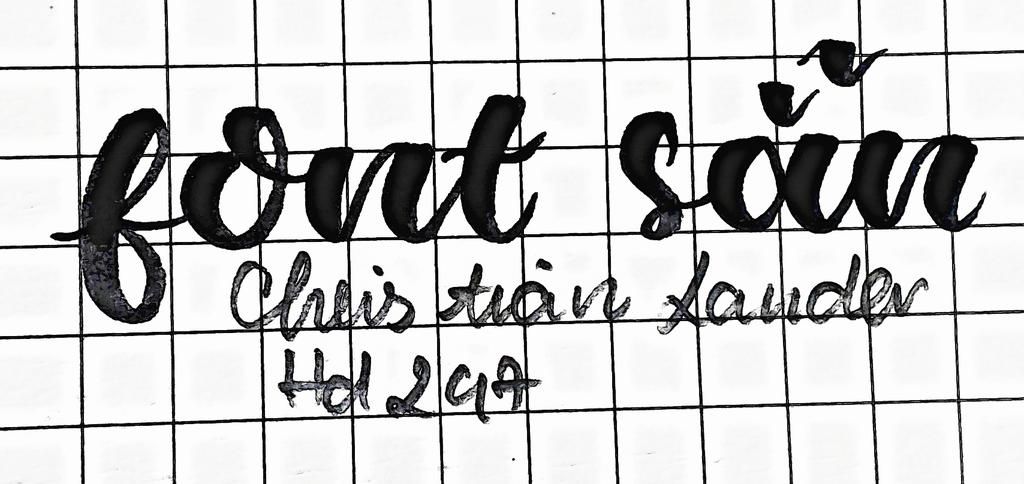 font sẵn
Chris tian Xander
Hd 29A